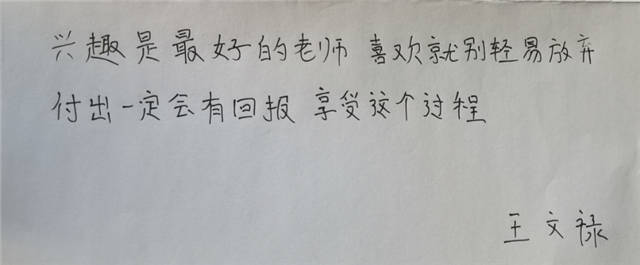 兴趣是最好的老师 喜欢就别轻易放弃
付出一定会有回报 享受这个过程
王文禄